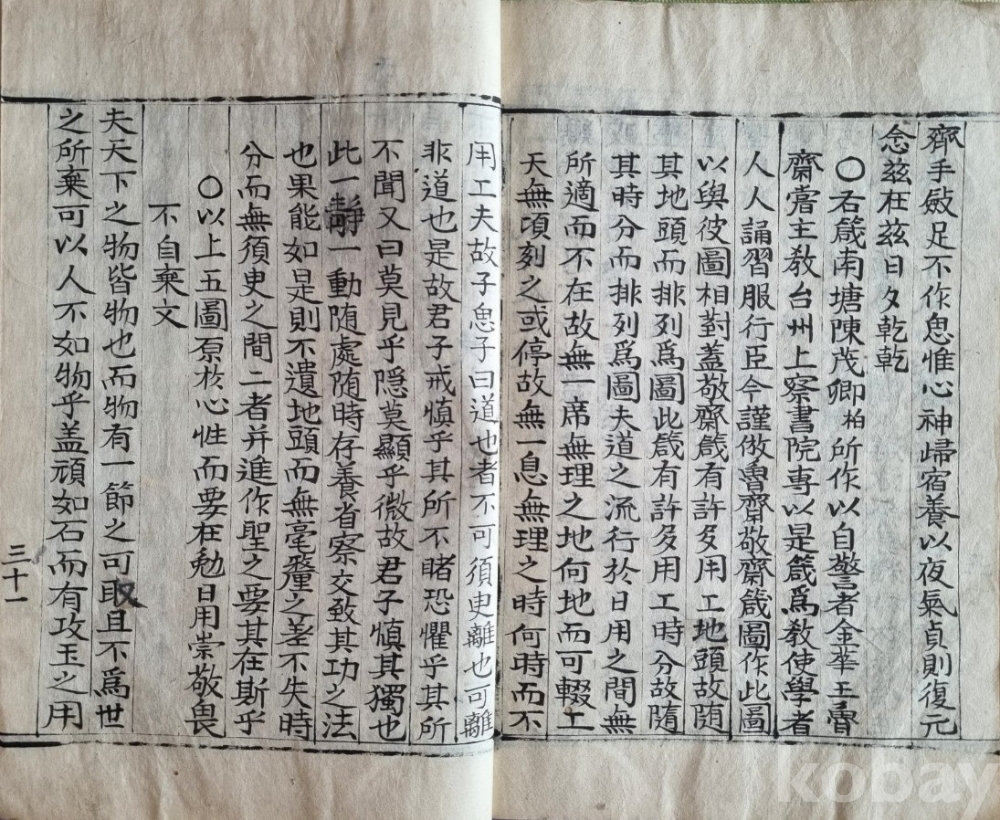 齊手斂足不作思惟心神歸宿養以夜氣貞則復元
念玆在玆日夕乾乾
○右箴南塘陳茂卿柏所作以自警者金華王魯
齋嘗主教台州上蔡書院專以是箴爲教使學者
人人誦習服行臣今謹倣魯齋敬齋箴圖作此圖
以與彼圖相對蓋敬齋箴有許多用工地頭故随
其地頭而排列爲圖此箴有許多用工時分故隨
其時分而排列爲圖夫道之流行於日用之間無
所適而不在故無一席無理之地何地而可輟工
天無頃刻之或停故無一息無理之時何時而不
用工夫故子思子曰道也者不可須臾離也可離
非道也是故君子戒愼乎其所不睹恐懼乎其所
不聞又曰莫見乎隱莫顯乎微故君子愼其獨也
此一靜一動随處随時存養省察交致其功之法
也果能如是則不遺地頭而無毫釐之差不失時
分而無須臾之間二者并進作聖之要其在斯乎
○以上五圖原於心性而要在勉日用崇敬畏
不自棄文
夫天下之物皆物也而物有一節之可取且不爲世
之所棄可以人不如物乎盖頑如石而有攻玉之用
三十一
kobay